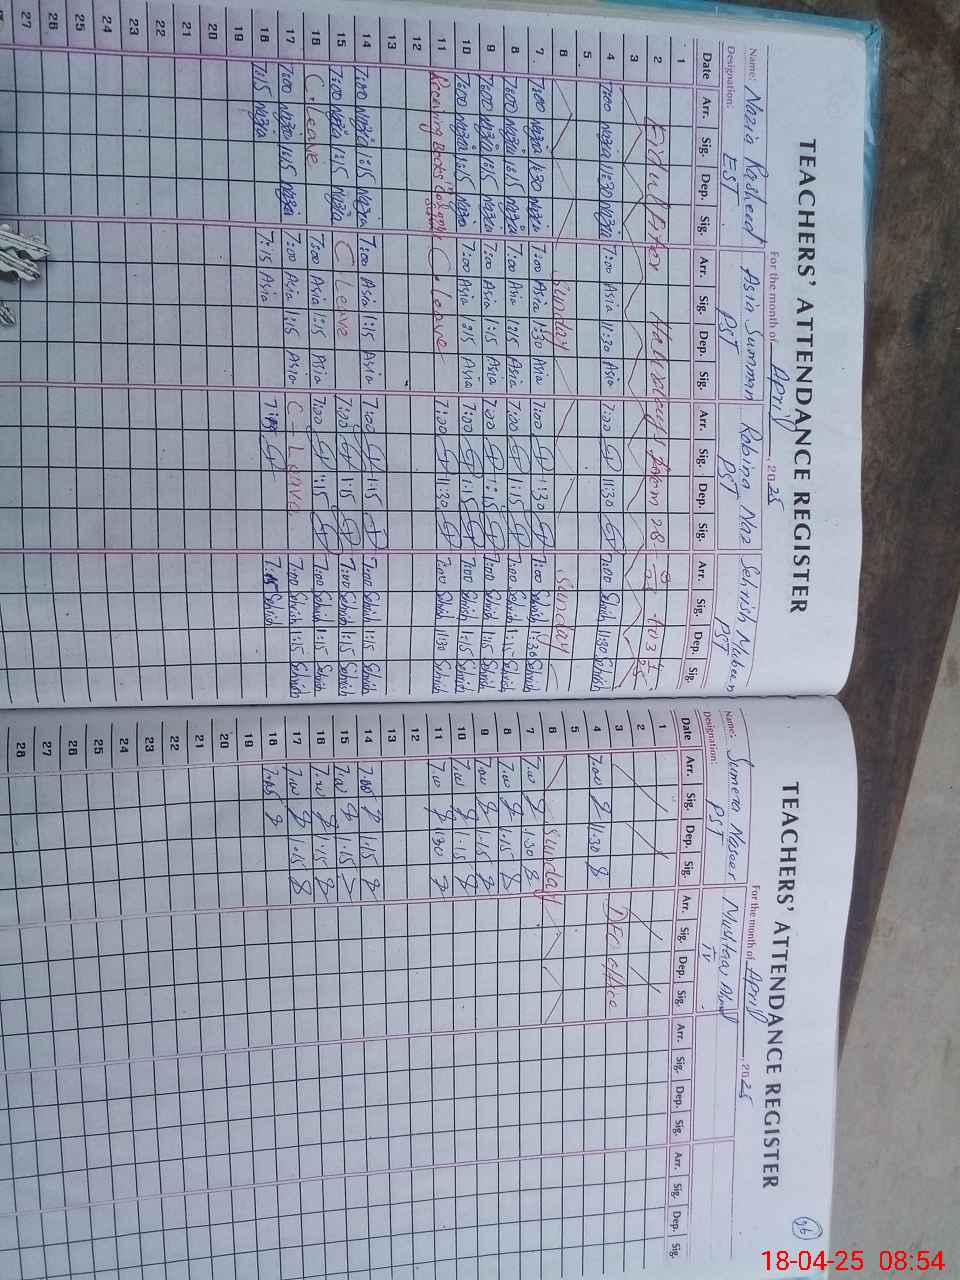 TEACHERS' ATTENDANCE REGISTER
For the month of April, 2025
Name: Nazia Rasheed Asia Summan Robina Naz Sehrish Mubeen
Designation: EST PST PST PST
Date Arr. Sig. Dep. Sig. Arr. Sig. Dep. Sig. Arr. Sig. Dep. Sig. Arr. Sig. Dep. Sig.
1
2 Eid ul Fiter Holidays from 28-3 to 3
3
4 7:00 Nazia 11:30 Nazia 7:00 Asia 11:30 Asia 7:00 11:30 7:00 Sehrish 11:30 Sehrish
5
6 Sunday Sunday
7 7:00 Nazia 1:30 Nazia 7:00 Asia 1:30 Asia 7:00 1:30 7:00 Sehrish 1:30 Sehrish
8 7:00 Nazia 1:15 Nazia 7:00 Asia 1:15 Asia 7:00 1:15 7:00 Sehrish 1:15 Sehrish
9 7:00 Nazia 1:15 Nazia 7:00 Asia 1:15 Asia 7:00 1:15 7:00 Sehrish 1:15 Sehrish
10 7:00 Nazia 1:15 Nazia 7:00 Asia 1:15 Asia 7:00 1:15 7:00 Sehrish 1:15 Sehrish
11 Receiving Books C. Leave 7:00 11:30 7:00 Sehrish 11:30 Sehrish
12
13
14 7:00 Nazia 1:15 Nazia 7:00 Asia 1:15 Asia 7:00 1:15 7:00 Sehrish 1:15 Sehrish
15 7:00 Nazia 1:15 Nazia C Leave 7:00 1:15 7:00 Sehrish 1:15 Sehrish
16 C. Leave 7:00 Asia 1:15 Asia 7:00 1:15 7:00 Sehrish 1:15 Sehrish
17 7:00 Nazia 1:15 Nazia 7:00 Asia 1:15 Asia C - Leave 7:00 Sehrish 1:15 Sehrish
18 7:15 Nazia 7:15 Asia 7:15 7:15 Sehrish
19
20
21
22
23
24
25
26
27
TEACHERS' ATTENDANCE REGISTER
96
For the month of April, 2025
Name: Sumera Naseer Mushtaq Ahmad
Designation: PST
Date Arr. Sig. Dep. Sig. Arr. Sig. Dep. Sig. Arr. Sig. Dep. Sig. Arr. Sig. Dep. Sig.
1
2
3 DEO office
4 7.00 11.30
5
6 Sunday
7 7.00 1.30
8 7.00 1.15
9 7.00 1.15
10 7.00 1.15
11 7.00 11.30
12
13
14 7.00 1.15
15 7.00 1.15
16 7.00 1.15
17 7.00 1.15
18 7.15
19
20
21
22
23
24
25
26
27
28
18-04-25 08:54